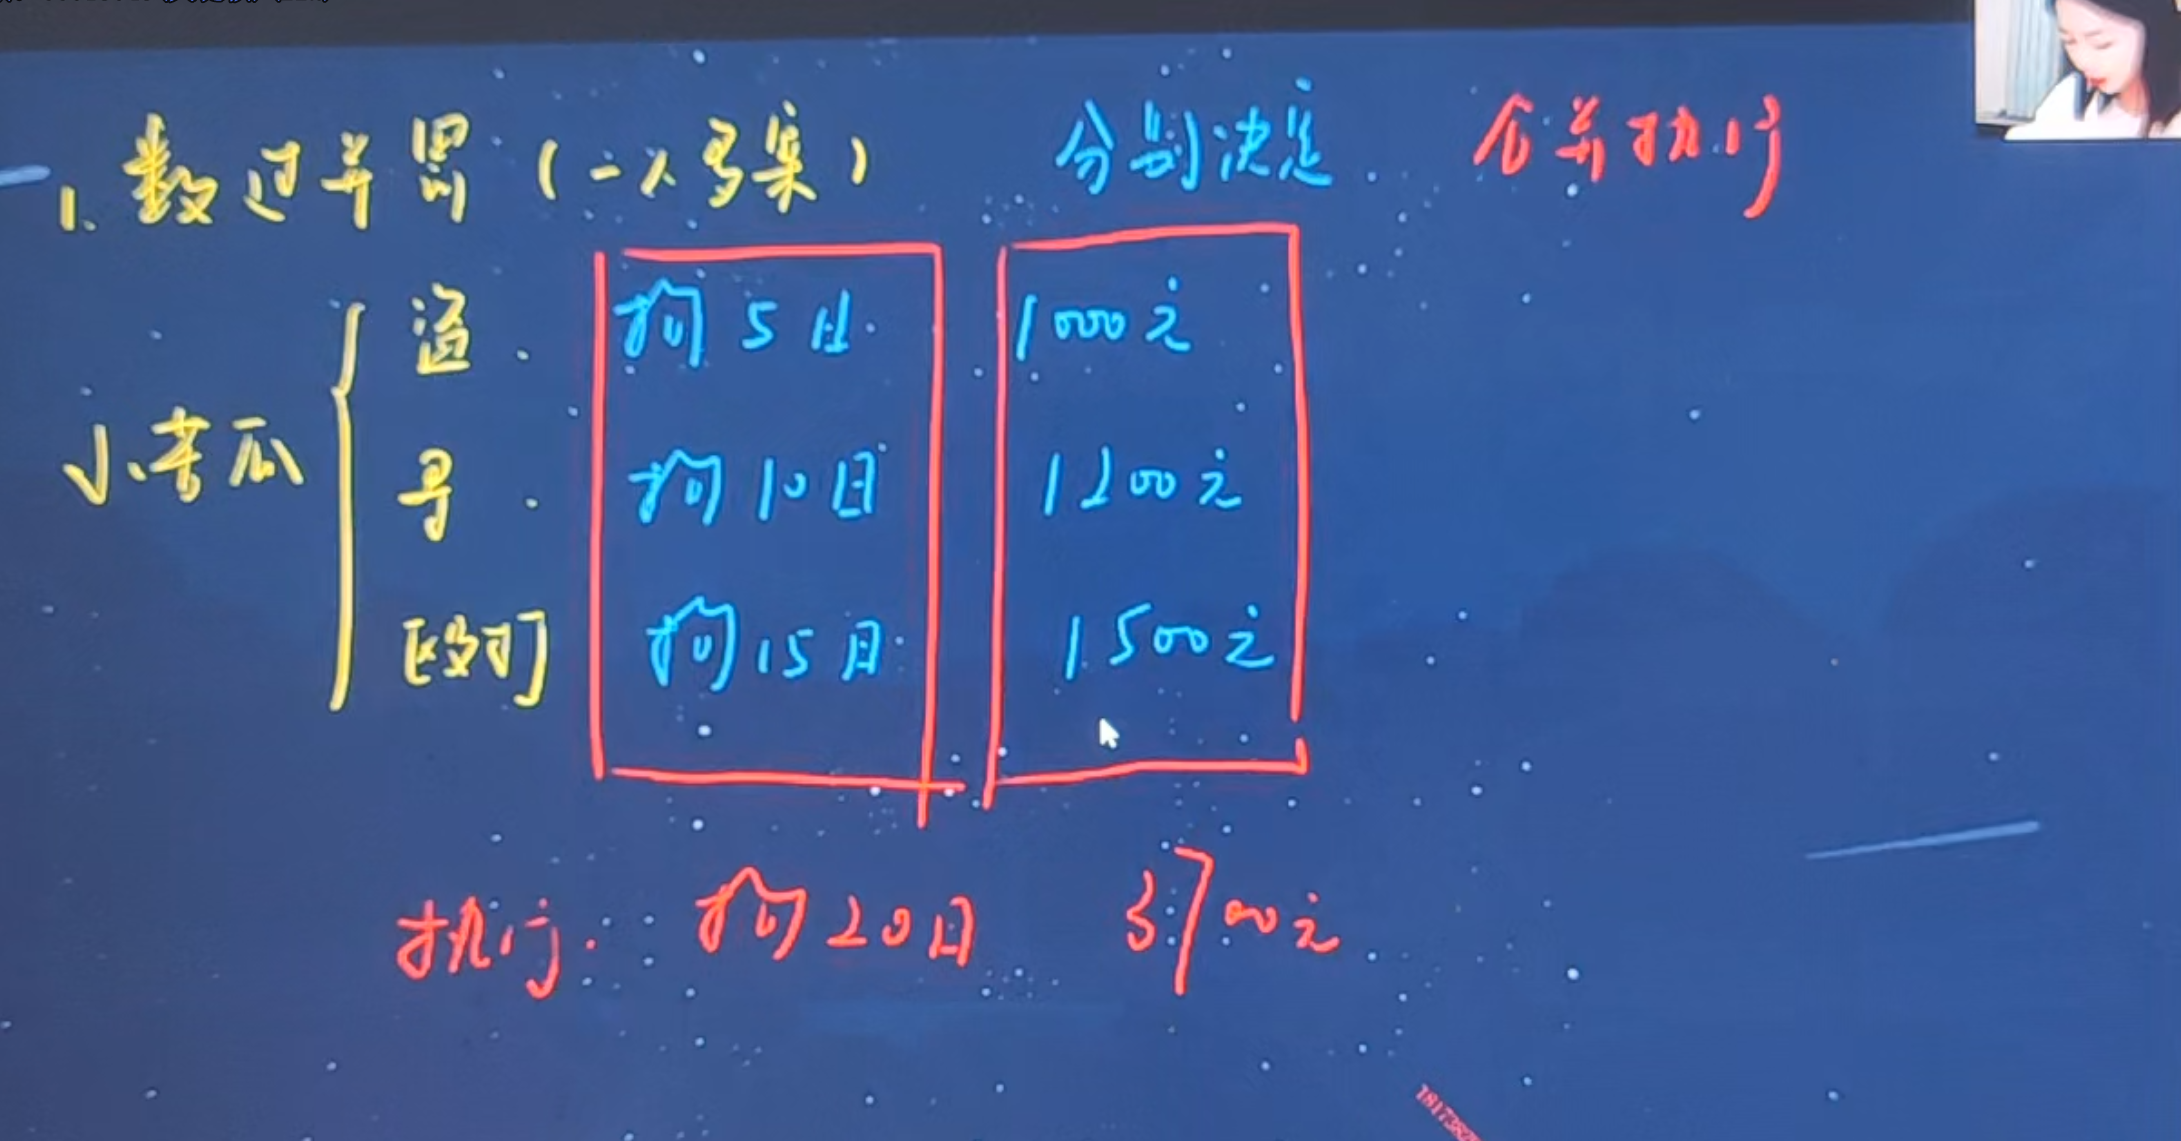 1. 数过并罚（一人多案） 分别决定. 合并执行
盗. 拘5日. 1000元
小苦瓜
寻. 拘10日 1200元
殴打 拘15日. 1500元
执行. 拘20日 3700元